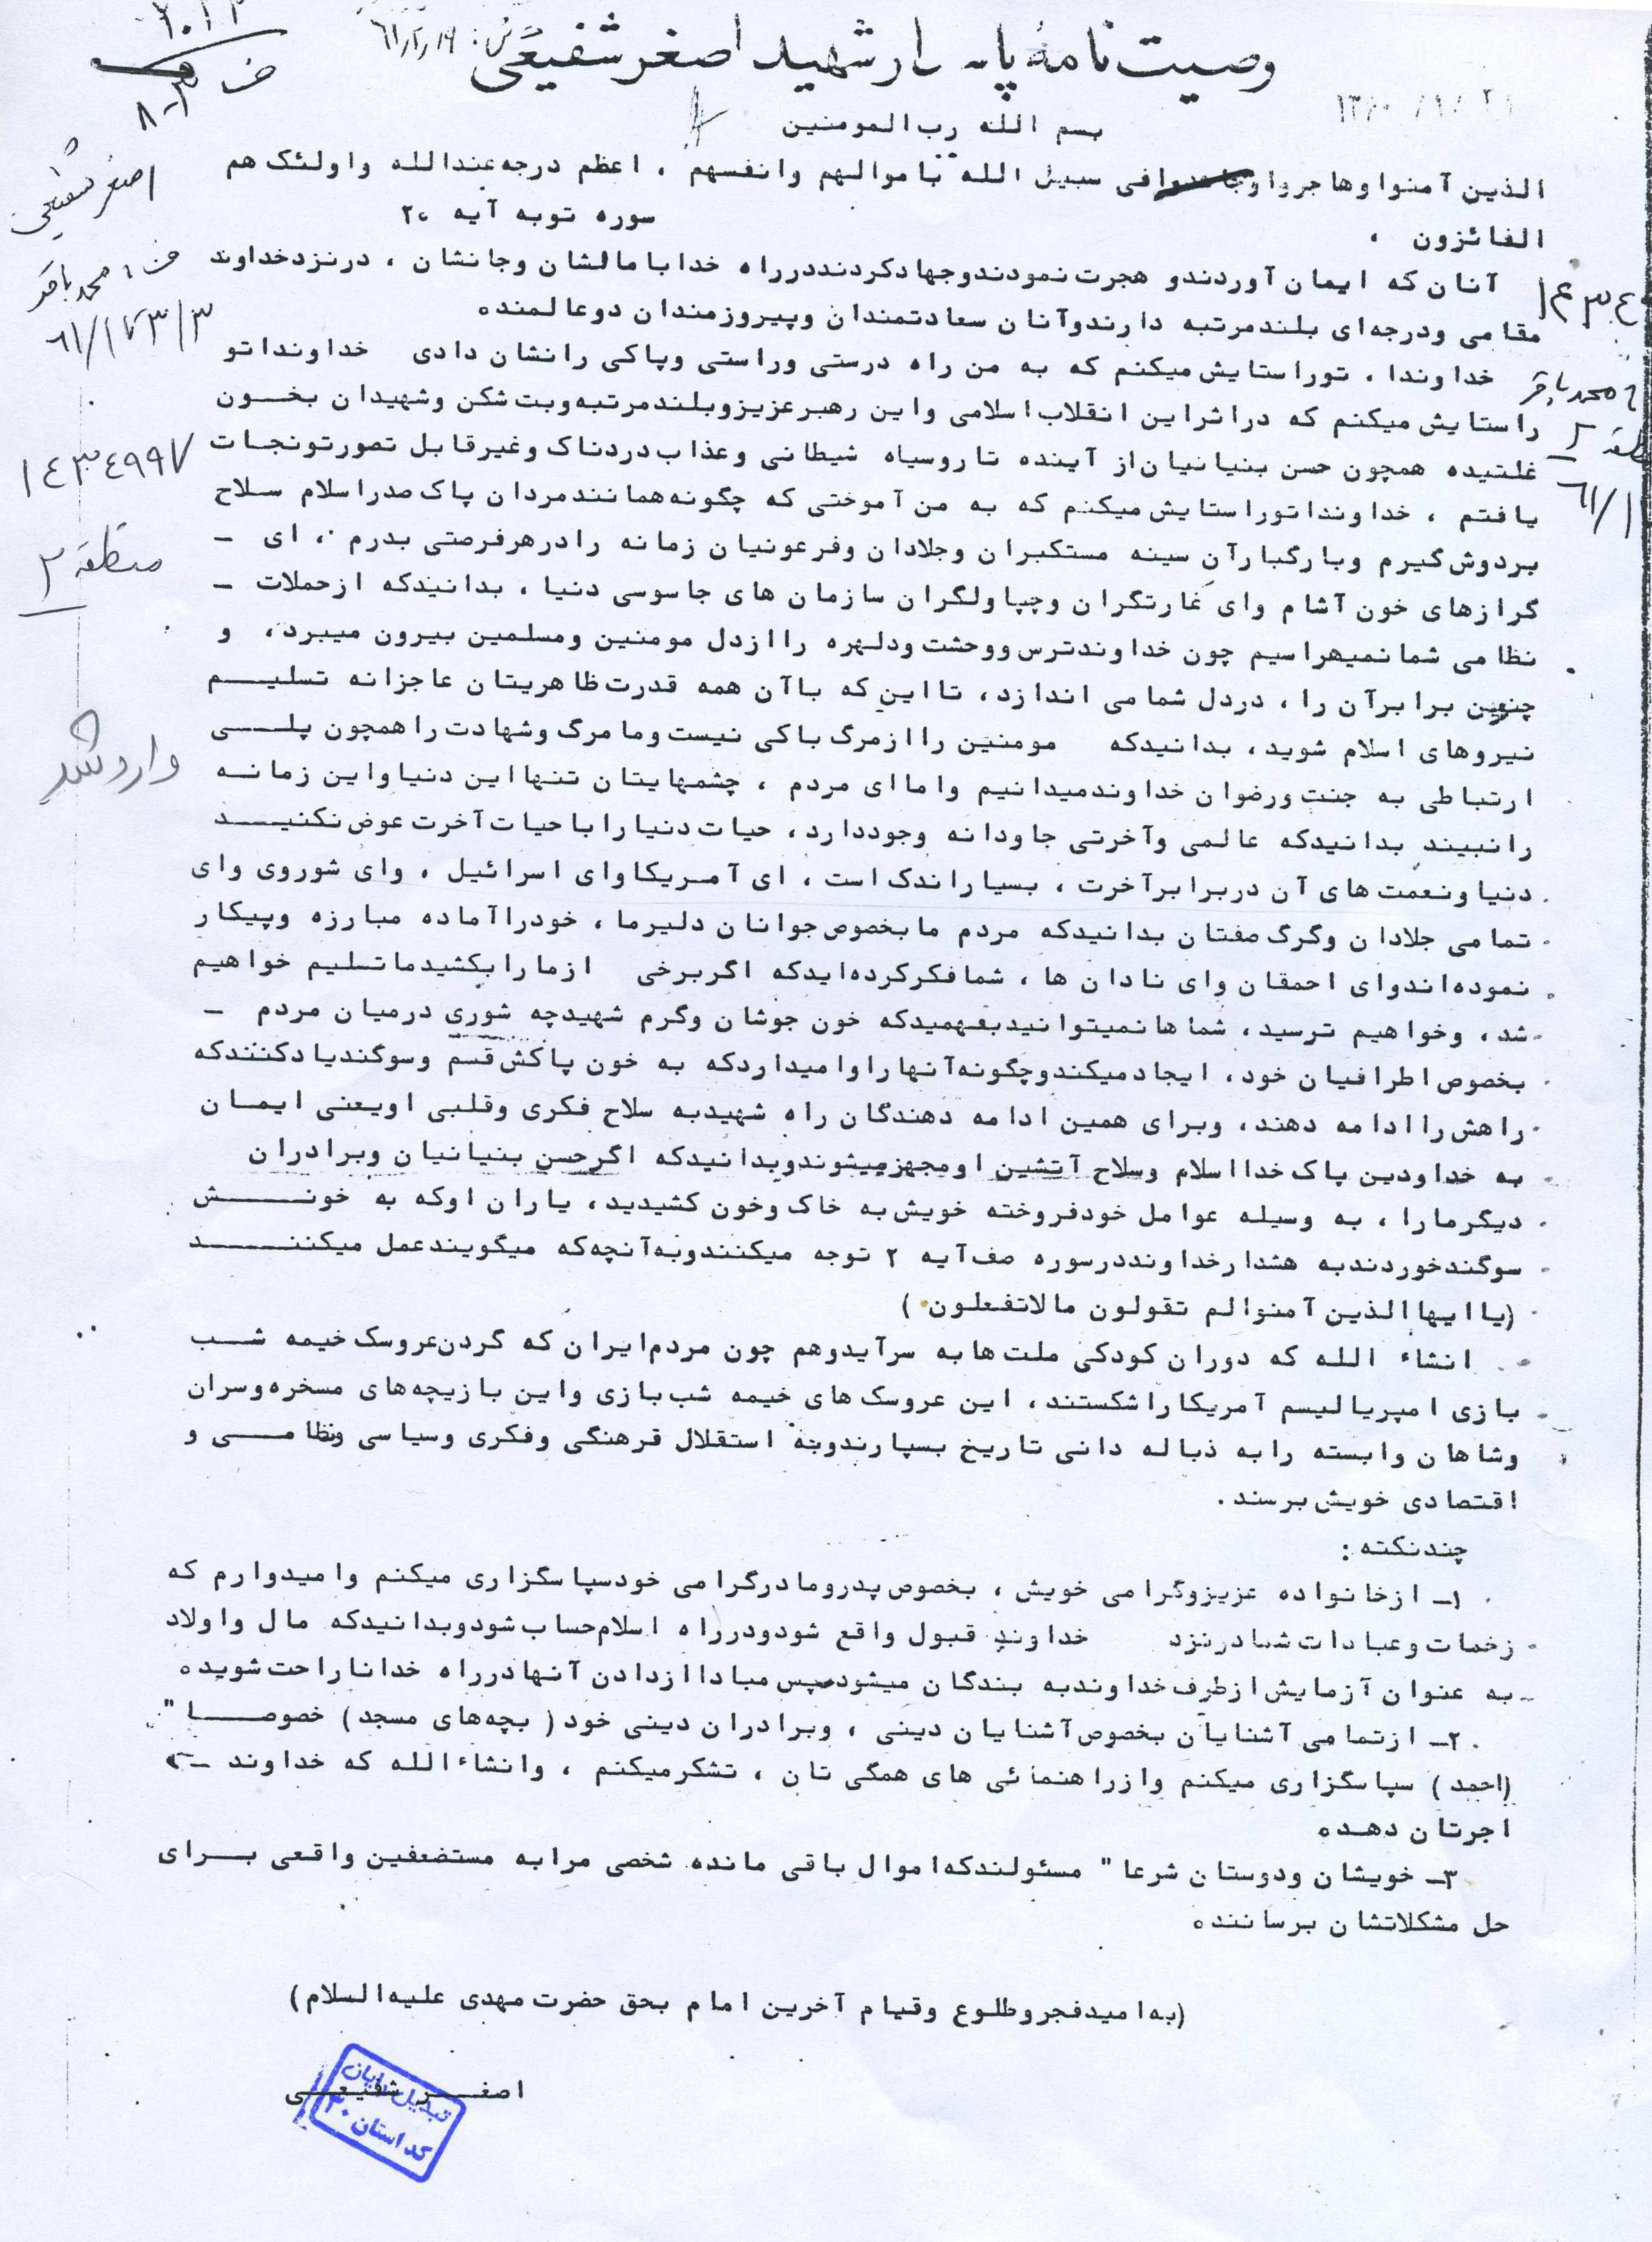 وصیت نامهٔ پاسدار شهید اصغر شفیعی
بسم الله رب المومنین
الذین آمنوا وهاجروا وجاهدوا فی سبیل الله باموالهم وانفسهم ، اعظم درجه عندالله واولئک هم
الفائزون ، سوره توبه آیه ۲۰
آنان که ایمان آوردندو هجرت نمودندوجهادکردنددرراه خدا با مالشان وجانشان ، درنزدخداوند
مقامی ودرجه‌ای بلندمرتبه دارندوآنان سعادتمندان وپیروزمندان دوعالمنده
خداوندا ، توراستایش میکنم که به من راه درستی وراستی وپاکی رانشان دادی خداونداتو
راستایش میکنم که دراثراین انقلاب اسلامی واین رهبرعزیزوبلندمرتبه وبت شکن وشهیدان بخون
غلتیده همچون حسن بنیانیان از آینده تاروسیاه شیطانی وعذاب دردناک وغیرقابل تصورتونجات
یافتم ، خداونداتوراستایش میکنم که به من آموختی که چگونه همانندمردان پاک صدراسلام سلاح
بردوش گیرم وبارگبارآن سینه مستکبران وجلادان وفرعونیان زمانه رادرهرفرصتی بدرم ، ای _
گرازهای خون آشام وای غارتگران وچپاولگران سازمان های جاسوسی دنیا ، بدانیدکه ازحملات _
نظامی شمانمیهراسیم چون خداوندترس ووحشت ودلهره راازدل مومنین ومسلمین بیرون میبرد ، و
چنین برابرآن را ، دردل شمامی اندازد ، تااین که باآن همه قدرت ظاهریتان عاجزانه تسلیم
نیروهای اسلام شوید ، بدانیدکه مومنین راازمرگ باکی نیست ومامرگ وشهادت راهمچون پلی
ارتباطی به جنت ورضوان خداوندمیدانیم واماای مردم ، چشمهایتان تنهااین دنیاواین زمانه
رانبیند بدانیدکه عالمی وآخرتی جاودانه وجوددارد ، حیات دنیاراباحیات آخرت عوض نکنید
دنیاونعمت های آن دربرابرآخرت ، بسیاراندک است ، ای آمریکاوای اسرائیل ، وای شوروی وای
تمامی جلادان وگرگ صفتان بدانیدکه مردم مابخصوص جوانان دلیرما ، خودراآماده مبارزه وپیکار
نموده‌اندوای احمقان وای نادان ها ، شمافکرکرده‌ایدکه اگربرخی ازمارابکشیدماتسلیم خواهیم
شد ، وخواهیم ترسید ، شماهانمیتوانیدبفهمیدکه خون جوشان وگرم شهیدچه شوری درمیان مردم _
بخصوص اطرافیان خود ، ایجادمیکندوچگونه‌آنهاراوامیداردکه به خون پاکش قسم وسوگندیادکنندکه
راهش راادامه دهند ، وبرای همین ادامه دهندگان راه شهیدبه سلاح فکری وقلبی اویعنی ایمان
به خداودین پاک خدااسلام وسلاح آتشین اومجهزمیشوندوبدانیدکه اگرحسن بنیانیان وبرادران
دیگرمارا ، به وسیله عوامل خودفروخته خویش به خاک وخون کشیدید ، یاران اوکه به خونش
سوگندخوردندبه هشدارخداونددرسوره صف آیه ۲ توجه میکنندوبه‌آنچه‌که میگویندعمل میکنند
(یاایهاالذین آمنوالم تقولون مالاتفعلون )
انشاء الله که دوران کودکی ملت هابه سرآیدوهم چون مردم‌ایران که گردن‌عروسک خیمه شب
بازی امپریالیسم آمریکاراشکستند ، این عروسک های خیمه شب بازی واین بازیچه‌های مسخره‌وسران
وشاهان وابسته رابه ذباله دانی تاریخ بسپارندوبه استقلال فرهنگی وفکری وسیاسی ونظامی و
اقتصادی خویش برسند .
چندنکته :
۱_ ازخانواده عزیزوگرامی خویش ، بخصوص پدرومادرگرامی خودسپاسگزاری میکنم وامیدوارم که
زحمات وعبادات شمادرنزد خداوند قبول واقع شودودرراه اسلام‌حساب شودوبدانیدکه مال واولاد
به عنوان آزمایش ازطرف خداوندبه بندگان میشودسپس مباداازدادن آنهادرراه خداناراحت شویده
۲_ ازتمامی آشنایان بخصوص آشنایان دینی ، وبرادران دینی خود ( بچه‌های مسجد ) خصوصا "
(احمد ) سپاسگزاری میکنم وازراهنمائی های همگی تان ، تشکرمیکنم ، وانشاءالله که خداوند _
اجرتان دهده
۳_ خویشان ودوستان شرعا " مسئولندکه‌اموال باقی مانده شخصی مرابه مستضعفین واقعی برای
حل مشکلاتشان برسانند ه
(به‌امیدفجروطلوع وقیام آخرین امام بحق حضرت مهدی علیه‌السلام)
اصغر شفیعی
تبدیل
کد استان ۳۰
اصغر شفیعی
محمد باقر
۱۴۳۴۹۹۷
منطقه ۲
وارد شد
محمد باقر